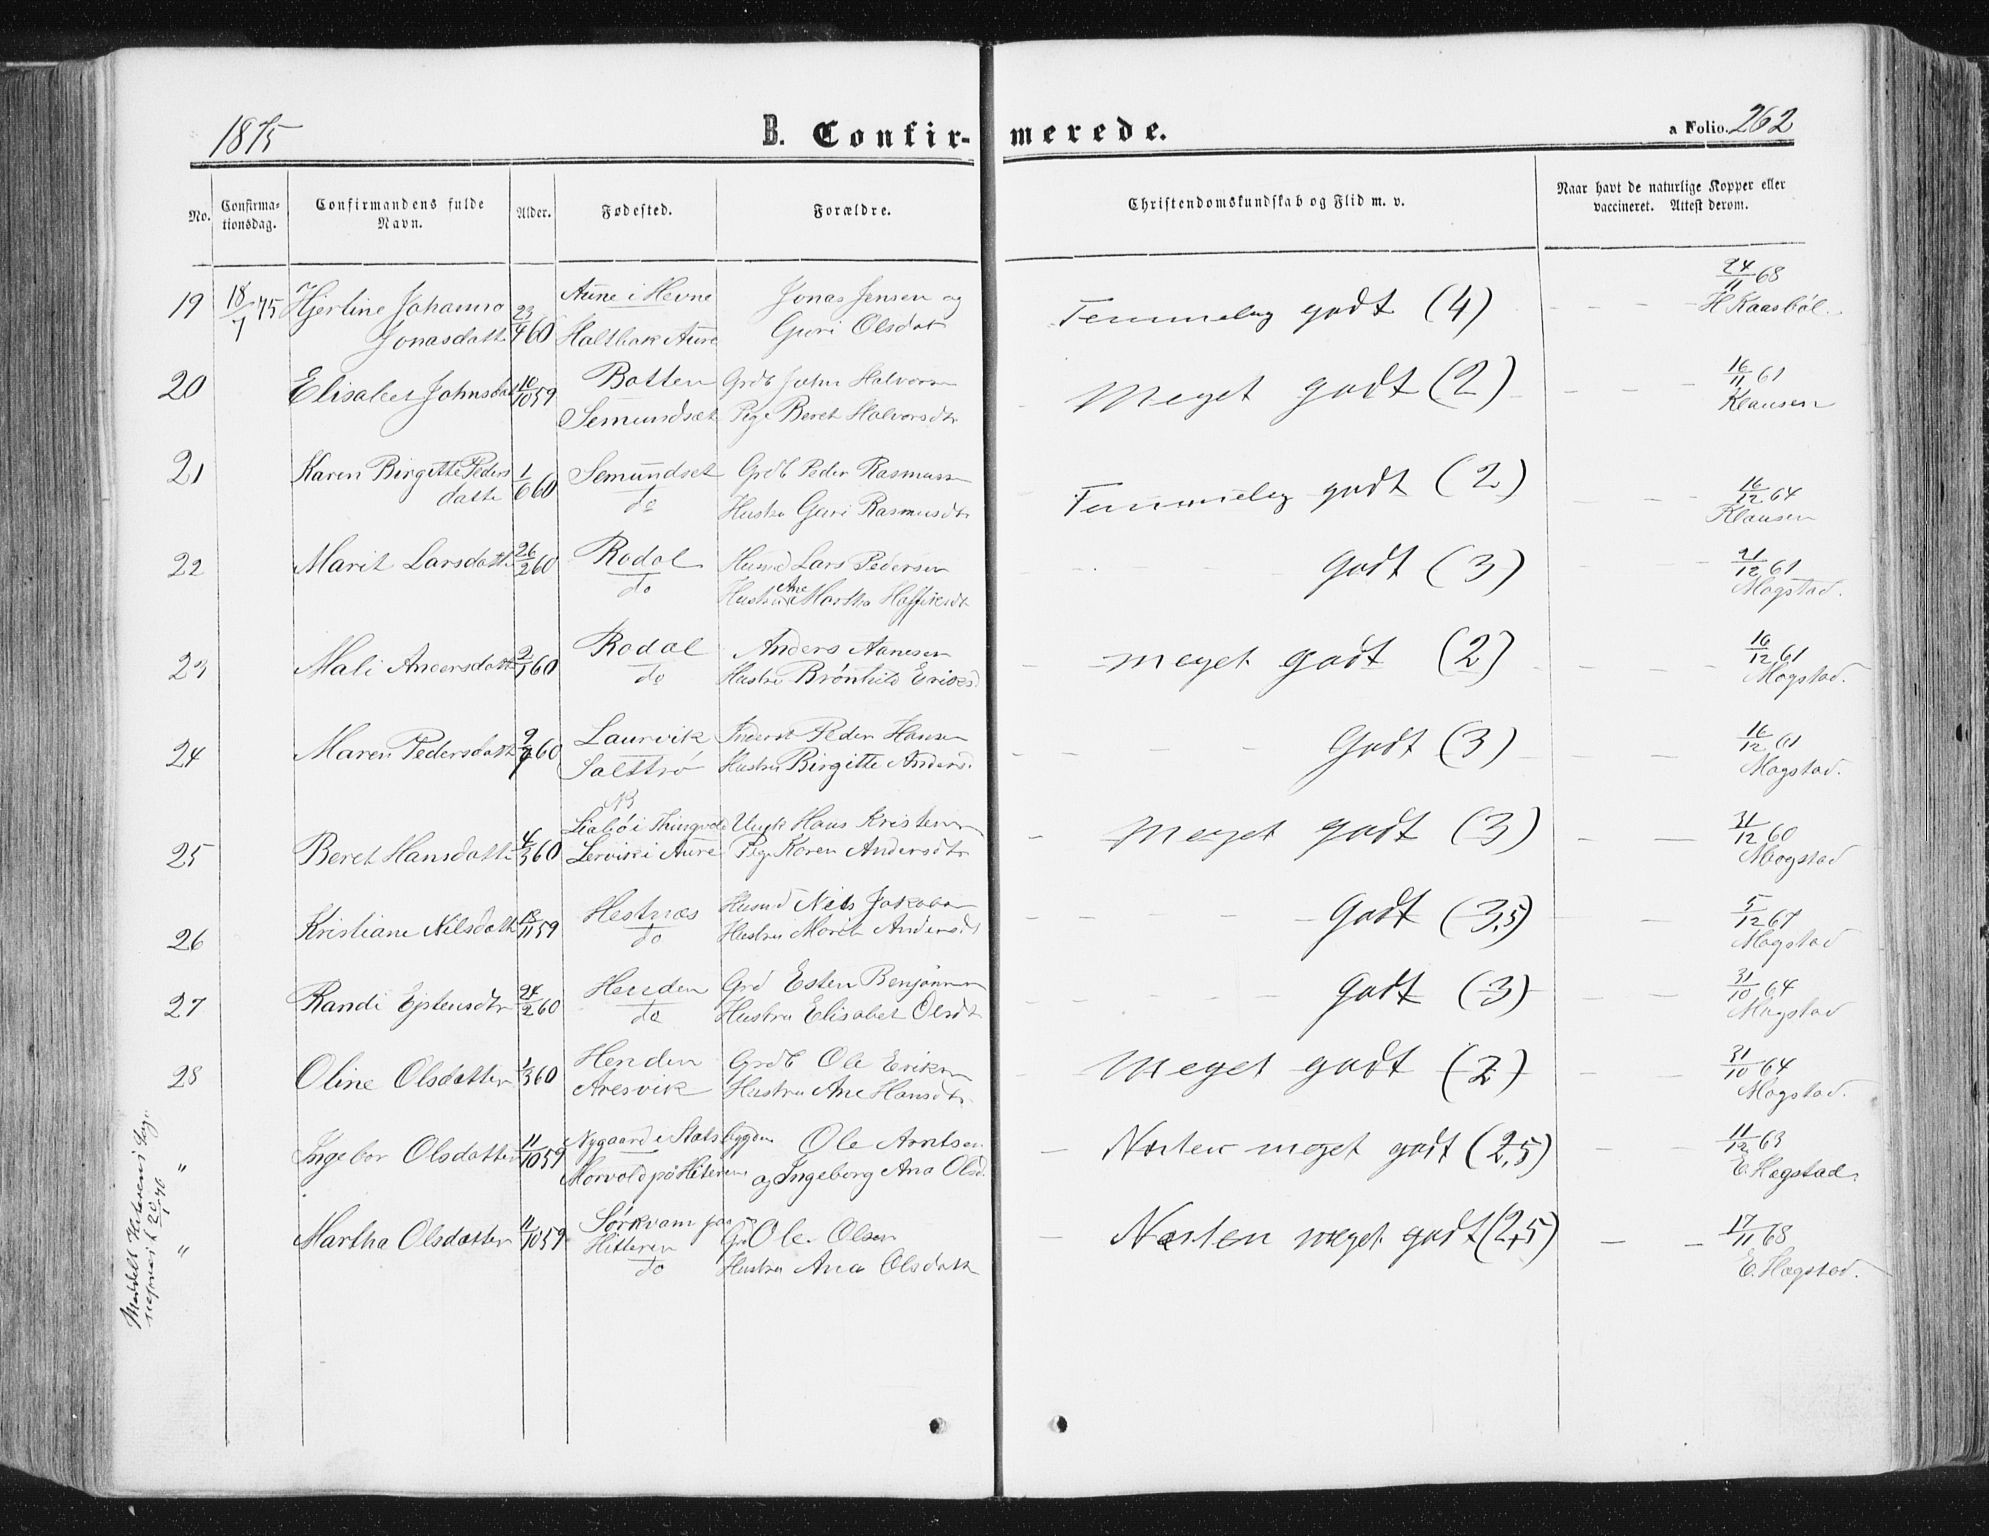 1875
B. Confirmerede.
a Folio. 262
No.
Confirmationsdag.
Confirmandens fulde Navn.
Alder.
Fødested.
Forældre.
Christendomskundskab og Flid m. v.
Naar havt de naturlige Kopper eller vaccineret. Attest derom.
19 18/7 75 Hjertine Johanna Jonasdatt 23/4 60 Aune i Hevne Jonas Jensen og Temmelig godt (4) 24/11 68
Aure Guri Olsdat H Kaasbøl.
20 Elisabet Johnsdat 10/10 59 Botten Grdb John Halvors Meget godt (2) 16/11 61
Semundset Pige Beret Halvorsdtr Klausen
21 Karen Birgitte Peders datte 1/6 60 Semundset Grdb Peder Rasmuss Temmelig godt (2) 16/12 64
do Hustru Guri Rasmusdtr Klausen
22 Marit Larsdatt 26/2 60 Rodal Husmd Lars Pedersen godt (3) 21/12 61
do Hustru Ane Martha Mogstad.
23 Mali Andersdatt 2/1 60 Rodal Anders Aanesen meget godt (2) 16/12 61
do Hustru Brønhild Eriksd Mogstad.
24 Maren Pedersdatt 60 Laurvik Inderst Peder Hansen Godt (3) 16/12 61
Saltrø Hustru Birgitte Andersd. Mogstad.
NB
25 Beret Hansdatte 4/3 60 Liabø i Ungk Hans Kristens Meget godt (3) 31/12 60
Lervik i Aure Pige Karen Andersdtr Mogstad
26 Kristiane Nilsdatt 59 Hestnæs Husmd Nils Jakobs Godt (3,5) 5/12 67
do Hustru Marit Andersdt Mogstad
27 Randi Estensdtr 24/2 60 Henden Grd Esten Benjamin godt (3) 31/10 64
do Hustru Elisabet Olsdt Mogstad
28 Oline Olsdatter 1/3 60 Henden Grdb Ole Eriks Meget godt (2) 31/10 64
Aresvik Hustru Ane Hansdtr. Mogstad.
" Ingebor Olsdatter 11/10 59 Nygaard i Statsbygden Ole Arntsen Næsten meget godt (2,5) 11/12 63
Morvold på Hiteren og Ingeborg Ana Olsd. E. Hogstad.
" Martha Olsdatter 11/10 59 Sørkvam paa Gr Ole Olsen Næsten meget godt (2,5) 17/11 68
Hitteren
do Hustru Ana Olsdatt E. Hogstad.
Meddelt Hiterens Sogneprest 20/1 76